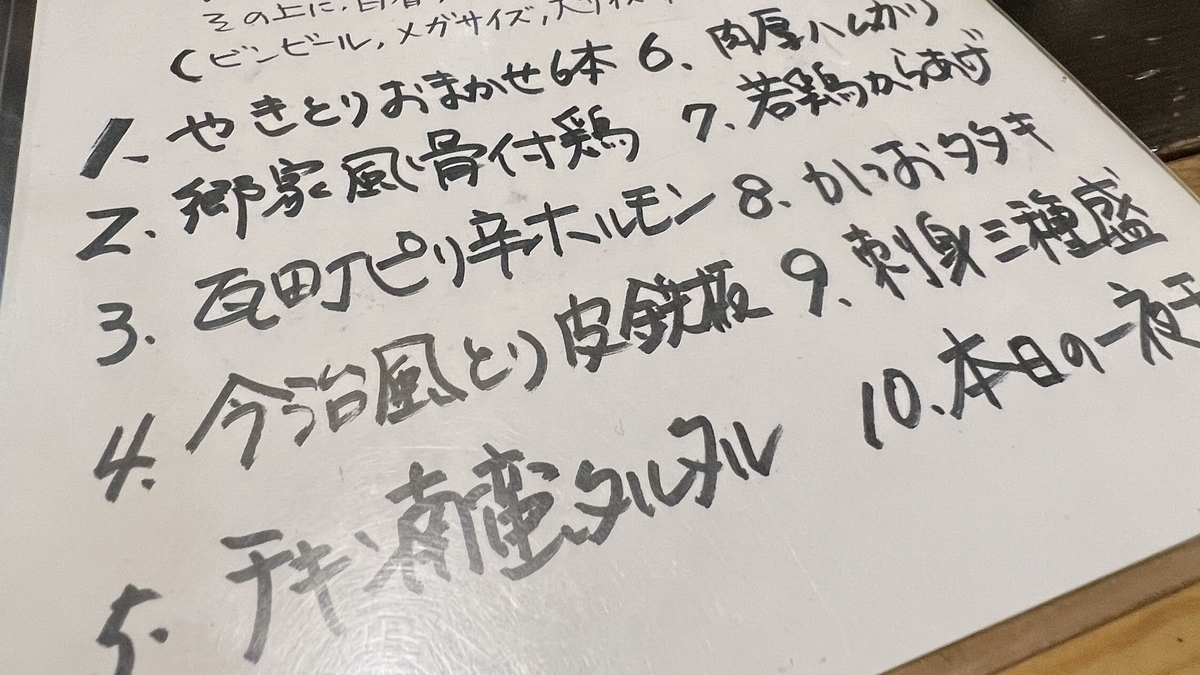 その上に、
(ビンビール,メガサイズ,大サイズ
1. やきとりおまかせ6本
2. 郷家風骨付鶏
3. 瓦町ピリ辛ホルモン
4. 今治風とり皮鉄板
5. チキン南蛮タルタル
6. 肉厚ハムカツ
7. 若鶏からあげ
8. かつおタタキ
9. 刺身三種盛
10. 本日の一夜干